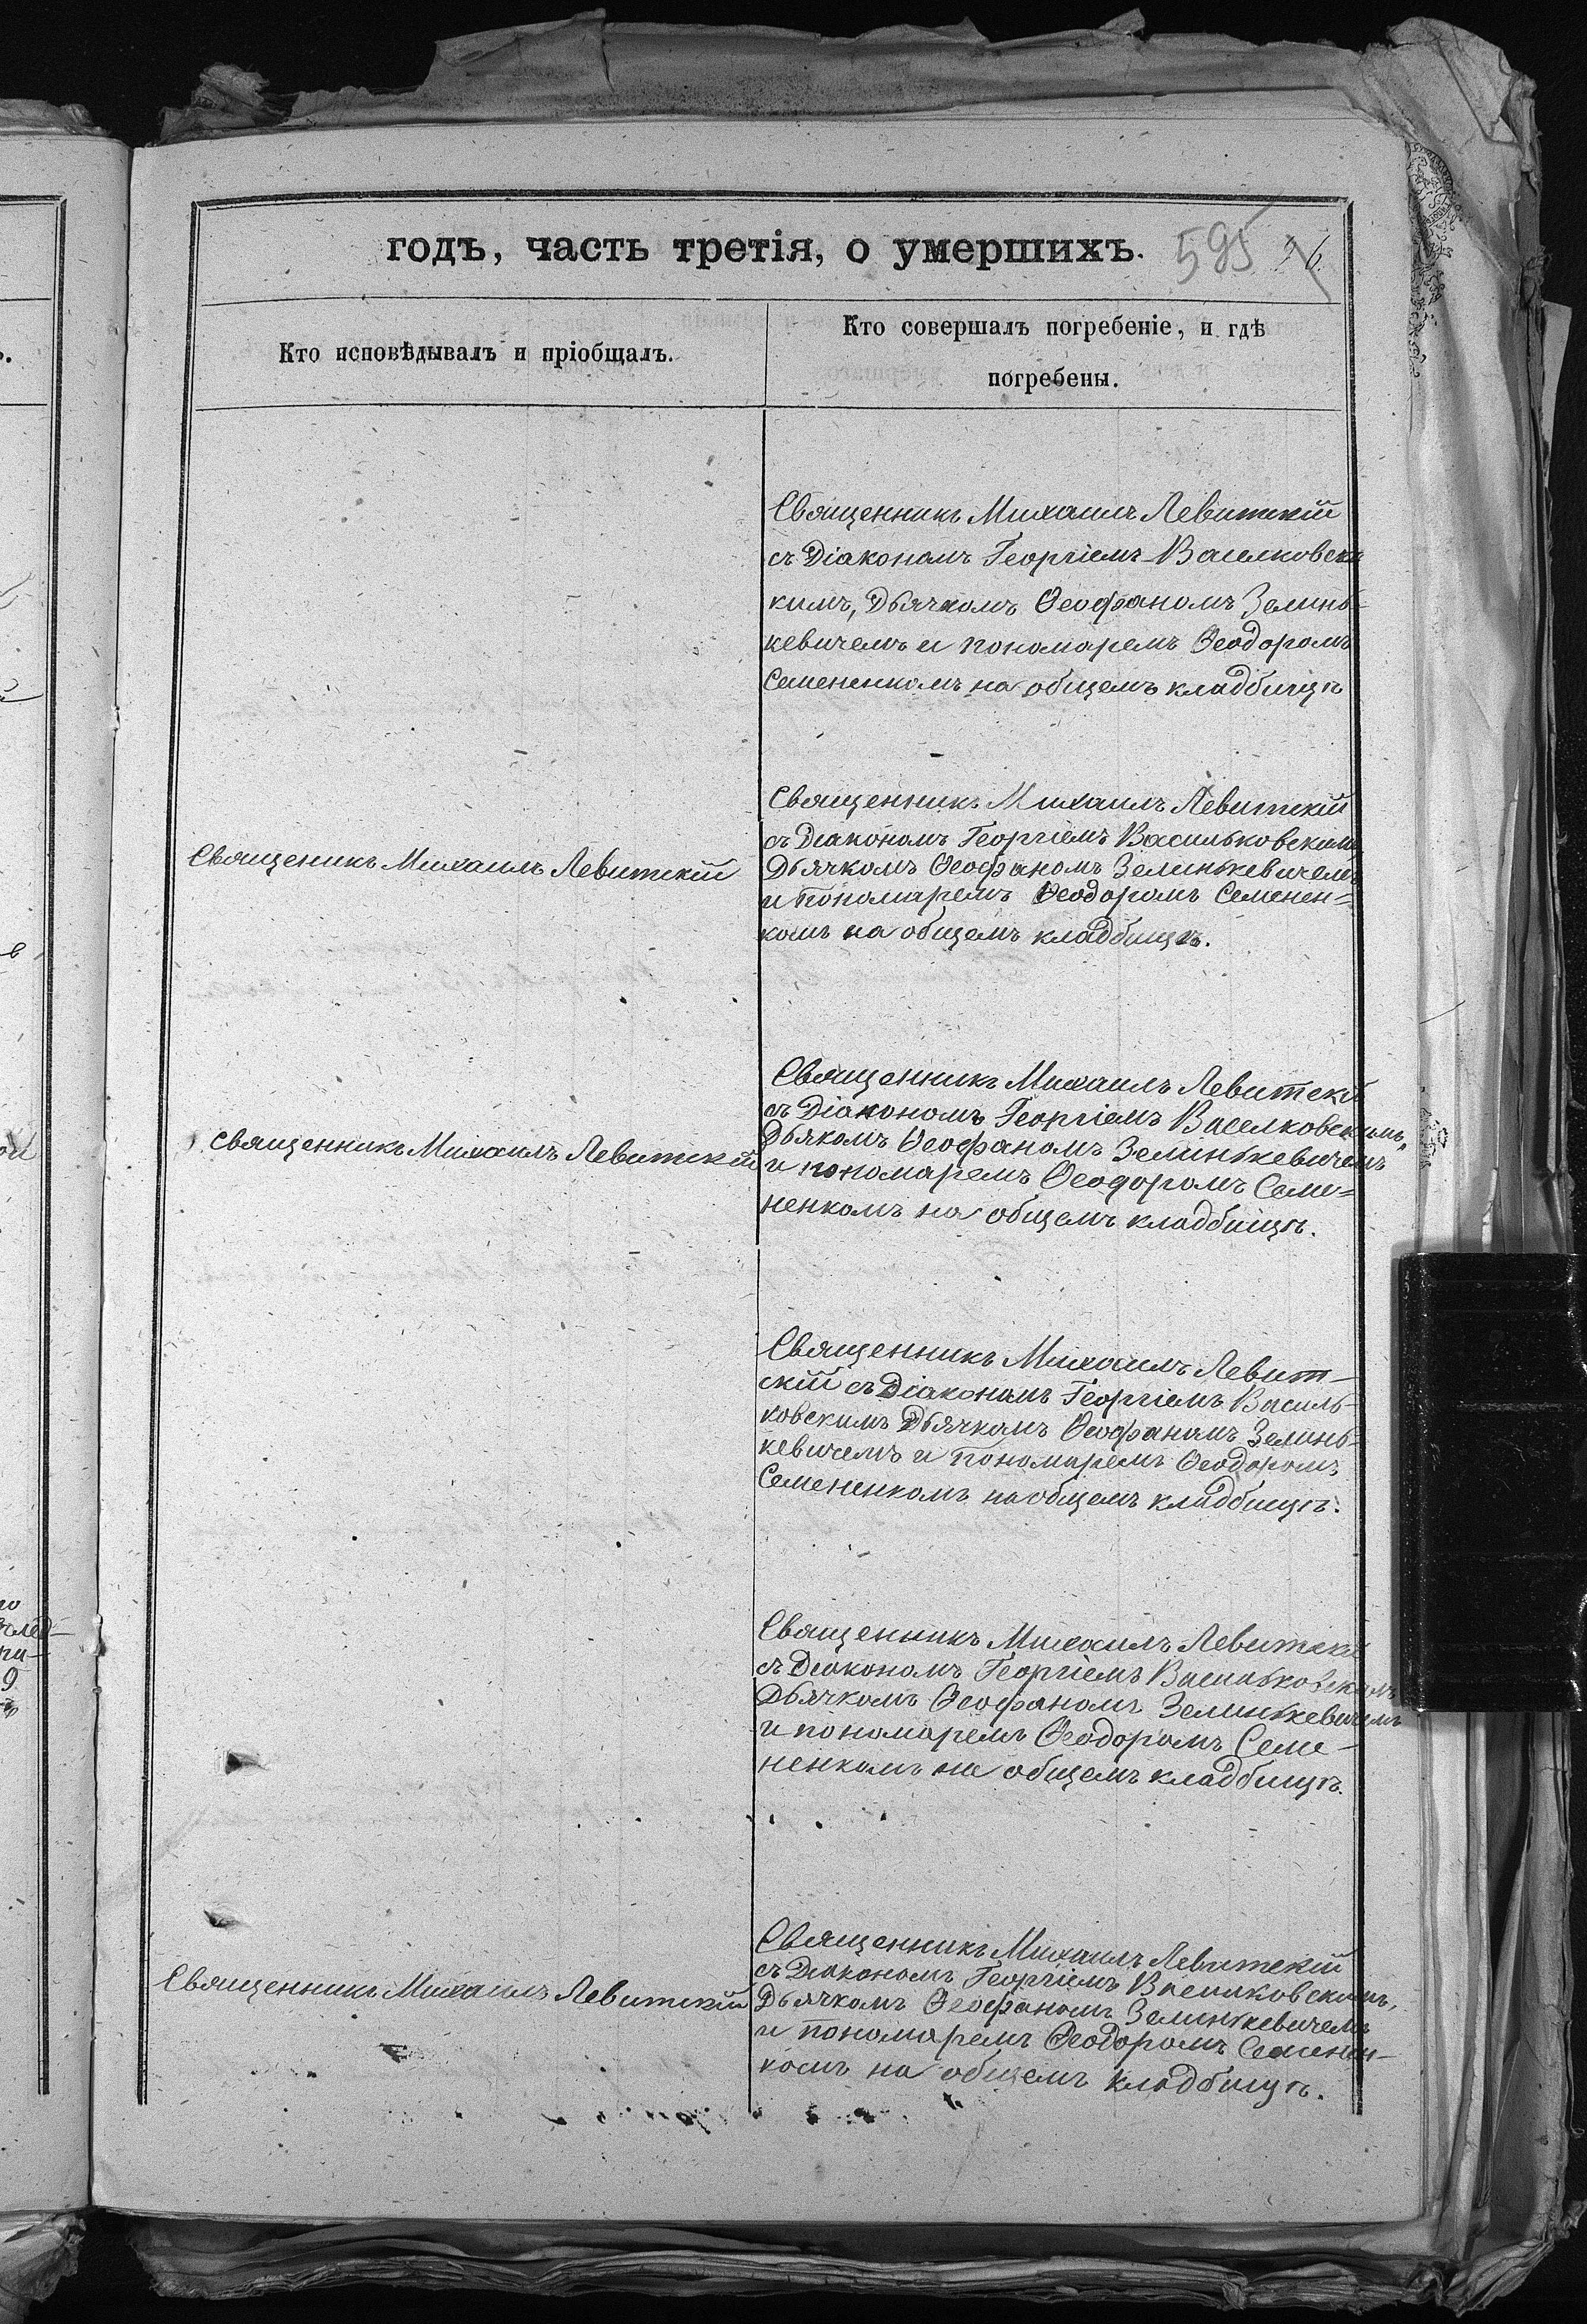 годъ, часть третія, о умершихъ.
595
Кто исповѣдывалъ и пріобщалъ.
Кто совершалъ погребеніе, и гдѣ
погребены.
Священникъ Михаилъ Левитскій
съ Діакономъ Георгіемъ Васелковск
кимъ, Дьячкомъ Ѳеофаномъ Зелинь-
кевичемъ и пономаремъ Ѳеодоромъ
Семененкомъ на общемъ кладбищѣ
Священикъ Михаилъ Левитскій
Священникъ Михаилъ Левитскій
съ Діакономъ Георгіемъ Васильковскимъ
Дьячкомъ Ѳеофаномъ Зелинькевичемъ
и Пономаремъ Ѳеодоромъ Семенен=
комъ на общемъ кладбищѣ.
священникъ Михаилъ Левитскій
Священникъ Михаилъ Левитскій
съ Діакономъ Георгіемъ Васелковскимъ,
Дьякомъ Ѳеофаномъ Зелинькевичемъ
и пономаремъ Ѳеодоромъ Семе=
ненкомъ на общемъ кладбищѣ.
Священникъ Михаилъ Левит-
скій съ Діакономъ Георгіемъ Василь-
ковскимъ Дьячкомъ Ѳеофаномъ Зелинь-
кевичемъ и Пономаремъ Ѳеодоромъ
Семененкомъ на общемъ кладбищѣ.
Священникъ Михаилъ Левитскій
съ Діакономъ Георгіемъ Васильковскимъ
Дьячкомъ Ѳеофаномъ Зелинькевичемъ
и пономаремъ Ѳеодоромъ Семе-
ненкомъ на общемъ кладбищѣ.
Священникъ Михаилъ Левитскій
Священникъ Михаилъ Левитскій
съ Діакономъ Георгіемъ Васильковскимъ,
Дьячкомъ Ѳеофаномъ Зелинькевичемъ
и пономаремъ Ѳеодоромъ Семенен-
комъ на общемъ кладбищѣ.